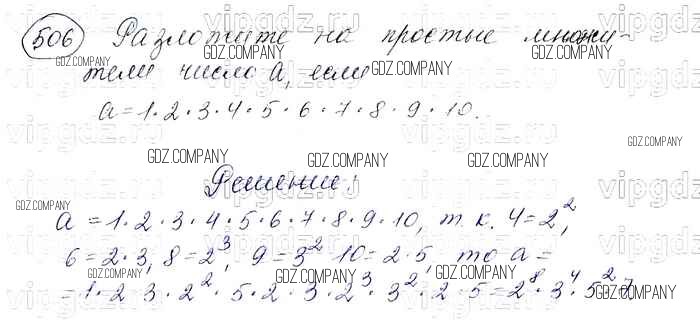 506 Разложите на простые множи-
тели число а, если
а = 1·2·3·4·5·6·7·8·9·10.
Решение:
а = 1·2·3·4·5·6·7·8·9·10, т.к. 4=2²,
6=2·3, 8=2³, 9=3² 10=2·5, то а =
=1·2·3·2²·5·2·3·2³·3²·2·5=2⁸·3⁴·5²·7.
GDZ.COMPANY
vipgdz.ru